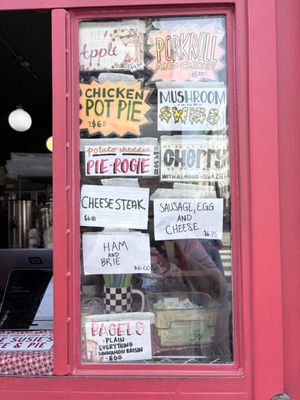 Apple
PORKROLL
AND CHEESE
CHICKEN
POT PIE
$6
MUSHROOM
AND
SWISS
potato cheddar
PIE-ROGIE
cherry
WITH ALMOND GLAZE
CHEESE STEAK
$6.00
SAUSAGE, EGG
AND
CHEESE
$6.75
HAM
AND
BRIE
BAGELS
-PLAIN
EVERYTHING
CINNAMON RAISIN
-EGG
SUSIE'S
& PIE